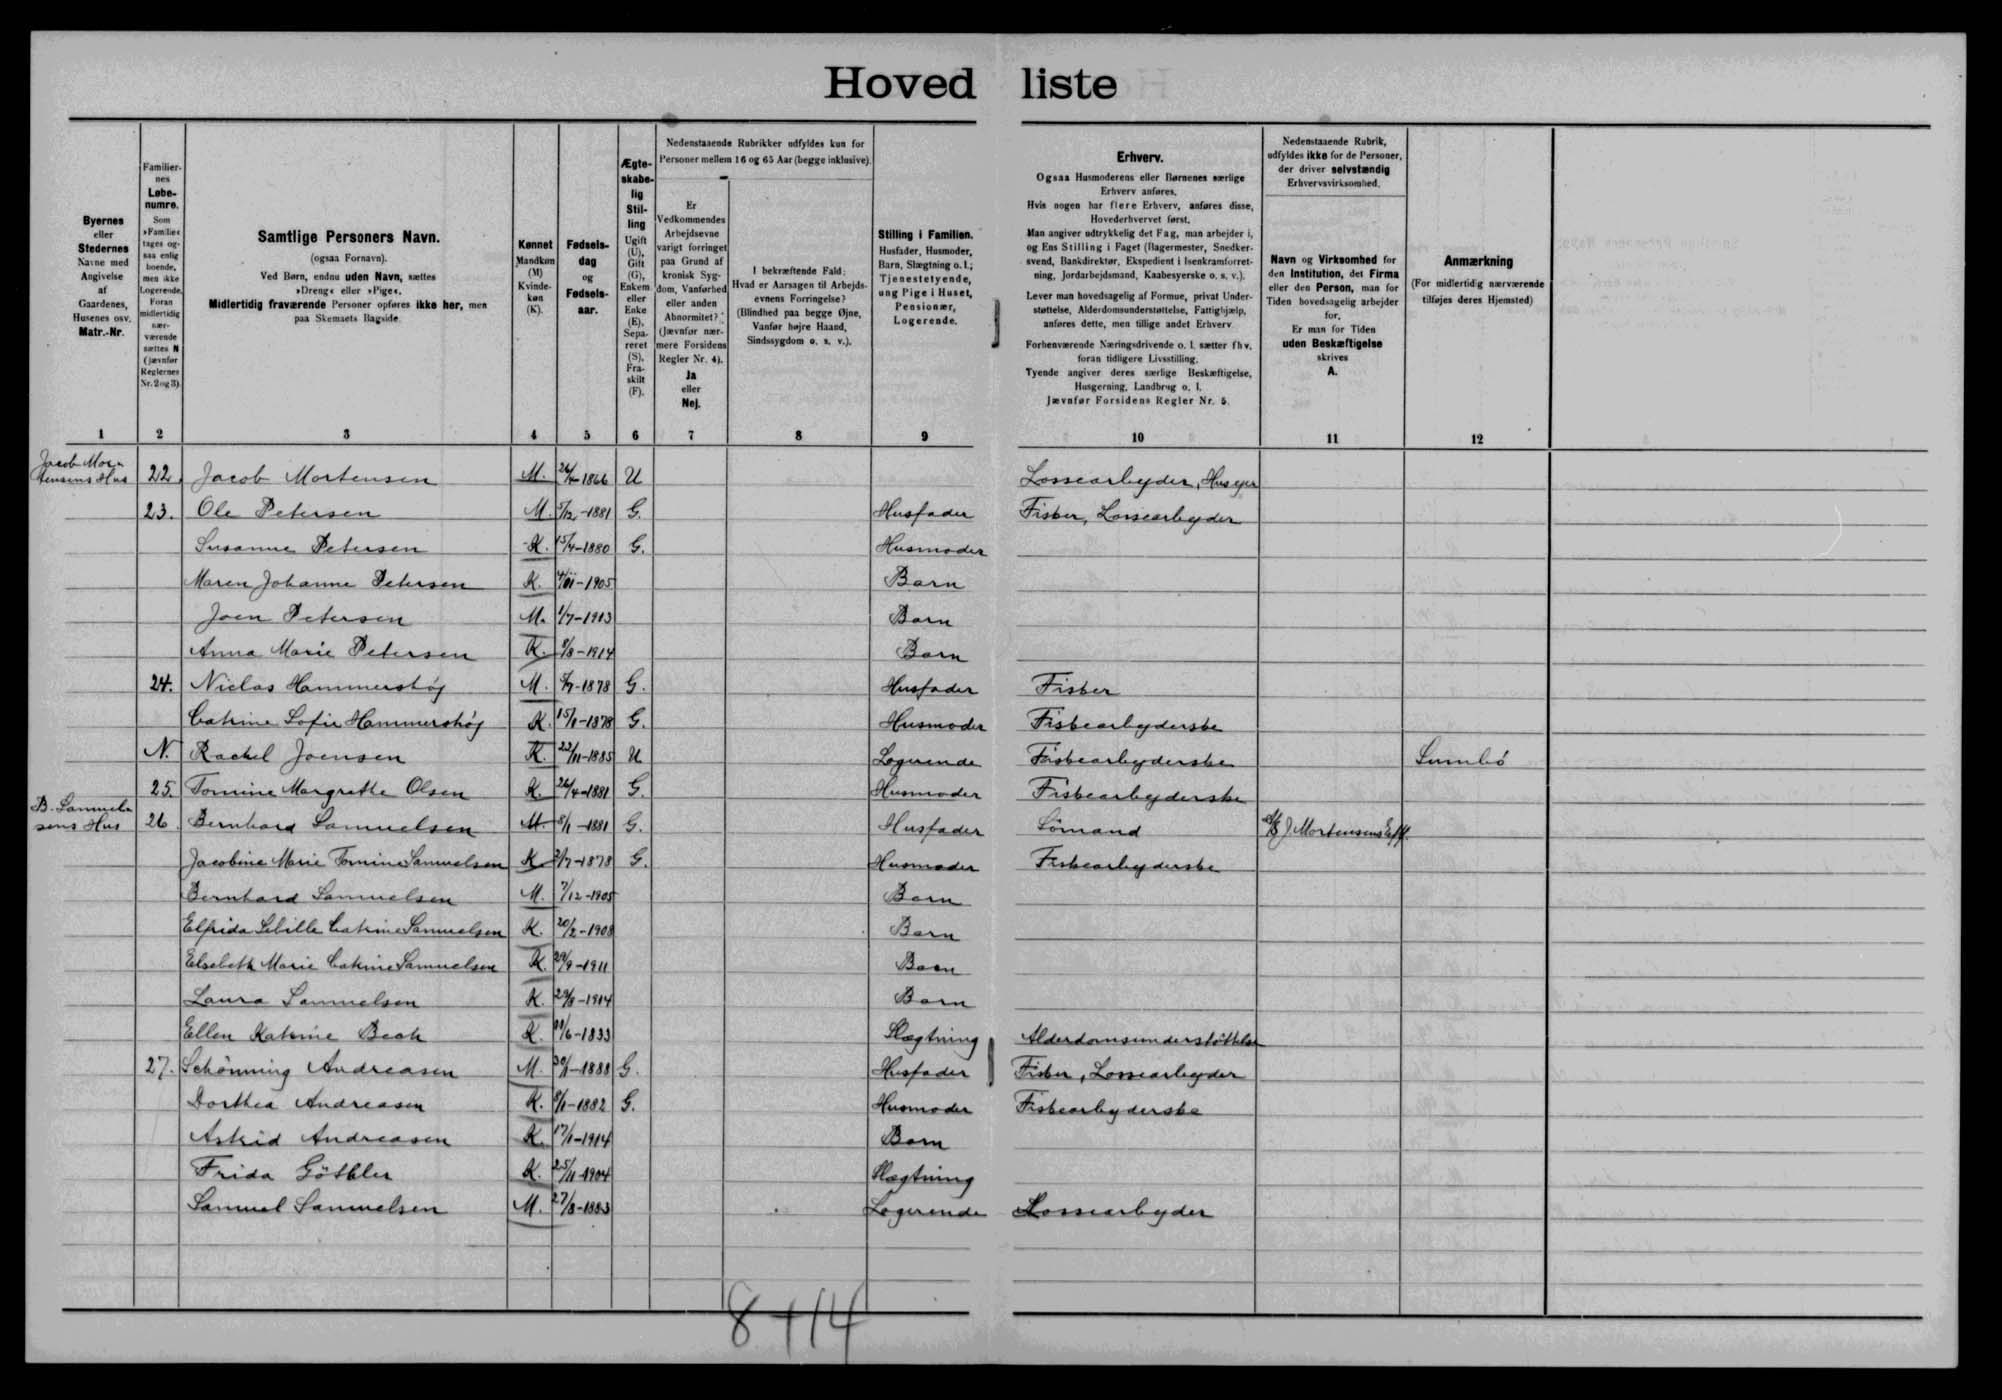 Hovedliste
Byernes
eller
Stedernes
Navne med
Angivelse
af
Gaardenes,
Husenes osv.
Matr.-Nr.
Familier-
nes
Løbe-
numre.
Som
»Familie«
tages og-
saa enlig
boende,
men ikke
Logerende.
Foran
midlertidig
nær-
værende
sættes N
(jævnfør
Reglernes
Nr. 2 og 3).
Samtlige Personers Navn.
(ogsaa Fornavn).
Ved Børn, endnu uden Navn, sættes
»Dreng« eller »Pige«.
Midlertidig fraværende Personer opføres ikke her, men
paa Skemaets Bagside.
Kønnet
Mandkøn
(M)
Kvinde-
køn
(K).
Fødsels-
dag
og
Fødsels-
aar.
Ægte-
skabe-
lig
Stil-
ling
Ugift
(U),
Gift
(G),
Enkem.
eller
Enke
(E),
Sepa-
reret
(S),
Fra-
skilt
(F).
Nedenstaaende Rubrikker udfyldes kun for
Personer mellem 16 og 65 Aar (begge inklusive).
Er
Vedkommendes
Arbejdsevne
varigt forringet
paa Grund af
kronisk Syg-
dom, Vanførhed
eller anden
Abnormitet?
(Jævnfør nær-
mere Forsidens
Regler Nr. 4).
Ja
eller
Nej.
I bekræftende Fald:
Hvad er Aarsagen til Arbejds-
evnens Forringelse?
(Blindhed paa begge Øjne,
Vanfør højre Haand,
Sindssygdom o. s. v.).
Stilling i Familien.
Husfader, Husmoder,
Barn, Slægtning o. l.;
Tjenestetyende,
ung Pige i Huset,
Pensionær,
Logerende.
Erhverv.
Ogsaa Husmoderens eller Børnenes særlige
Erhverv anføres.
Hvis nogen har flere Erhverv, anføres disse,
Hovederhvervet først.
Man angiver udtrykkelig det Fag, man arbejder i,
og Ens Stilling i Faget (Bagermester, Snedker-
svend, Bankdirektør, Ekspedient i Isenkramforret-
ning, Jordarbejdsmand, Kaabesyerske o. s. v.).
Lever man hovedsagelig af Formue, privat Under-
støttelse, Alderdomsunderstøttelse, Fattighjælp,
anføres dette, men tillige andet Erhverv.
Forhenværende Næringsdrivende o. l. sætter fhv.
foran tidligere Livsstilling.
Tyende angiver deres særlige Beskæftigelse,
Husgerning, Landbrug o. l.
Jævnfør Forsidens Regler Nr. 5.
Nedenstaaende Rubrik,
udfyldes ikke for de Personer,
der driver selvstændig
Erhvervsvirksomhed.
Navn og Virksomhed for
den Institution, det Firma
eller den Person, man for
Tiden hovedsagelig arbejder
for.
Er man for Tiden
uden Beskæftigelse
skrives
A.
Anmærkning
(For midlertidig nærværende
tilføjes deres Hjemsted)
1 2 3 4 5 6 7 8 9 10 11 12
Jacob Mor-
tensens Hus 22. Jacob Mortensen M. 26/4-1866 U Lossearbejder, Husejer
23. Ole Petersen M. 5/12-1881 G. Husfader Fisker, Lossearbejder
Susanne Petersen K. 15/4-1880 G. Husmoder
Maren Johanne Petersen K. 4/11-1905 Barn
Joen Petersen M. 1/7-1913 Barn
Anna Marie Petersen K. 8/8-1914 Barn
24. Niclas Hammershøj M. 4/7-1878 G. Husfader Fisker
Catrine Sofie Hammershøj K. 15/1-1878 G. Husmoder Fiskearbejderske
N. Rachel Joensen K. 23/11-1885 U Logerende Fiskearbejderske Sumbø
25. Tomine Margrethe Olsen K. 26/4-1881 G. Husmoder Fiskearbejderske
B. Samuel-
sens Hus 26. Bernhard Samuelsen M. 8/1-1881 G. Husfader Sømand A/S J. Mortensens Eftf.
Jacobine Marie Tomine Samuelsen K. 2/7-1878 G. Husmoder Fiskearbejderske
Bernhard Samuelsen M. 7/12-1905 Barn
Elfrida Sibille Catrine Samuelsen K. 20/2-1908 Barn
Elsebeth Marie Catrine Samuelsen K. 29/9-1911 Barn
Laura Samuelsen K. 29/8-1914 Barn
Ellen Katrine Beck K. 11/6-1833 Slægtning Alderdomsunderstøttelse
27. Schönning Andreasen M. 30/1-1888 G. Husfader Fisker, Lossearbejder
Dorthea Andreasen K. 8/1-1882 G. Husmoder Fiskearbejderske
Astrid Andreasen K. 17/1-1914 Barn
Frida Göthler K. 25/11-1904 Slægtning
Samuel Samuelsen M. 27/8-1883 Logerende Lossearbejder
8+14